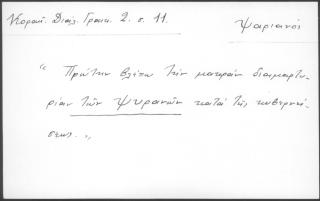 Κοραή. Διάλ. Γραικ. 2. σ. 11.
Ψαριανός
“ Πρώτην βλέπω τὴν μακρὰν διαμαρτυ-
ρίαν τῶν Ψυριανῶν κατὰ τῆς κυβερνή-
σεως. „